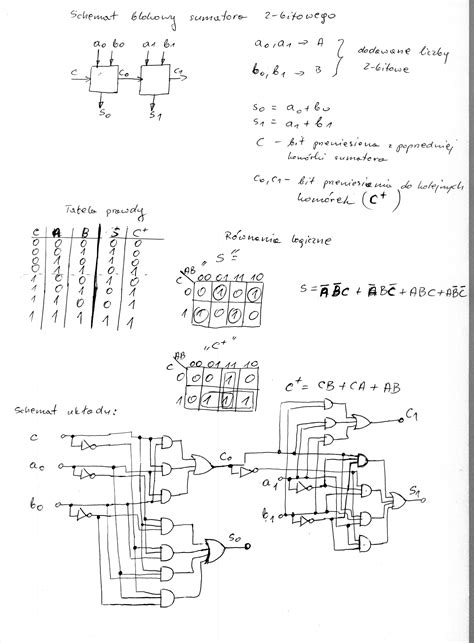 Schemat blokowy sumatora 2-bitowego
a0 b0 a1 b1
C C0 C1
S0 S1
a0, a1 → A
b0, b1 → B
dodawane liczby
2-bitowe
S0 = a0 + b0
S1 = a1 + b1
C - bit przeniesienia z poprzedniej
komórki sumatora
C0, C1 - bit przeniesienia do kolejnych
komórek (C+)
Tabela prawdy
C A B S C+
0 0 0 0 0
0 0 1 1 0
0 1 0 1 0
0 1 1 0 1
1 0 0 1 0
1 0 1 0 1
1 1 0 0 1
1 1 1 1 1
Równania logiczne
„S" =
AB
C 00 01 11 10
0 0 1 0 1
1 1 0 1 0
S = A̅B̅C + A̅BC̅ + ABC + AB̅C̅
„C+"
AB
C 00 01 11 10
0 0 0 1 0
1 0 1 1 1
C+ = CB + CA + AB
Schemat układu:
C
a0
b0
C0
S0
a1
b1
C1
S1